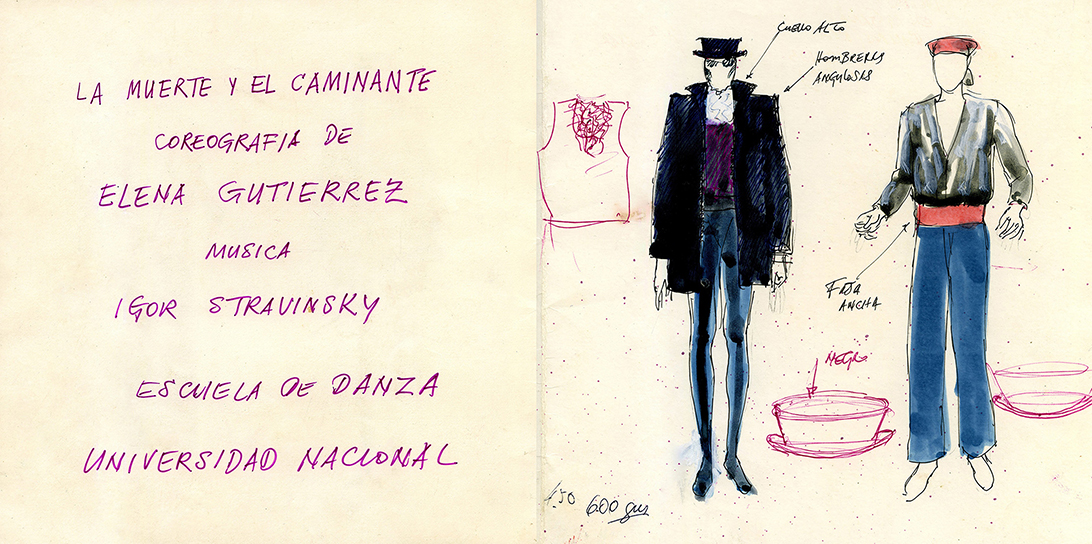 LA MUERTE Y EL CAMINANTE
COREOGRAFIA DE
ELENA GUTIERREZ
MUSICA
IGOR STRAVINSKY
ESCUELA DE DANZA
UNIVERSIDAD NACIONAL
CUELLO ALTO
HOMBRERAS
ANGULOSAS
FAJA
ANCHA
NEGRO
600 grs